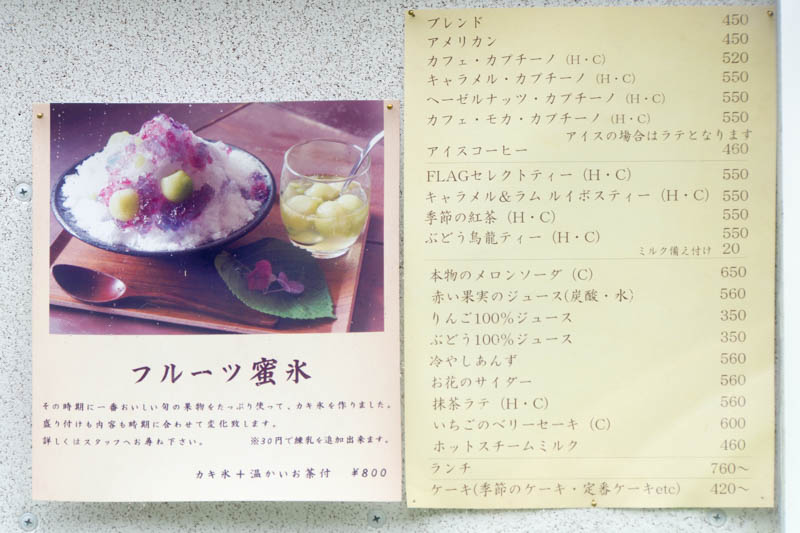 フルーツ蜜氷
その時期に一番おいしい旬の果物をたっぷり使って、カキ氷を作りました。
盛り付けも内容も時期に合わせて変化致します。
詳しくはスタッフへお尋ね下さい。 ※30円で練乳を追加出来ます。
カキ氷＋温かいお茶付 ¥800
ブレンド 450
アメリカン 450
カフェ・カプチーノ（H・C） 520
キャラメル・カプチーノ（H・C） 550
ヘーゼルナッツ・カプチーノ（H・C） 550
カフェ・モカ・カプチーノ（H・C） 550
アイスの場合はラテとなります
アイスコーヒー 460
FLAGセレクトティー（H・C） 550
キャラメル&ラム ルイボスティー（H・C） 550
季節の紅茶（H・C） 550
ぶどう烏龍ティー（H・C） 550
ミルク備え付け 20
本物のメロンソーダ（C） 650
赤い果実のジュース(炭酸・水) 560
りんご100%ジュース 350
ぶどう100%ジュース 350
冷やしあんず 560
お花のサイダー 560
抹茶ラテ（H・C） 560
いちごのベリーセーキ（C） 600
ホットスチームミルク 460
ランチ 760〜
ケーキ(季節のケーキ・定番ケーキetc) 420〜